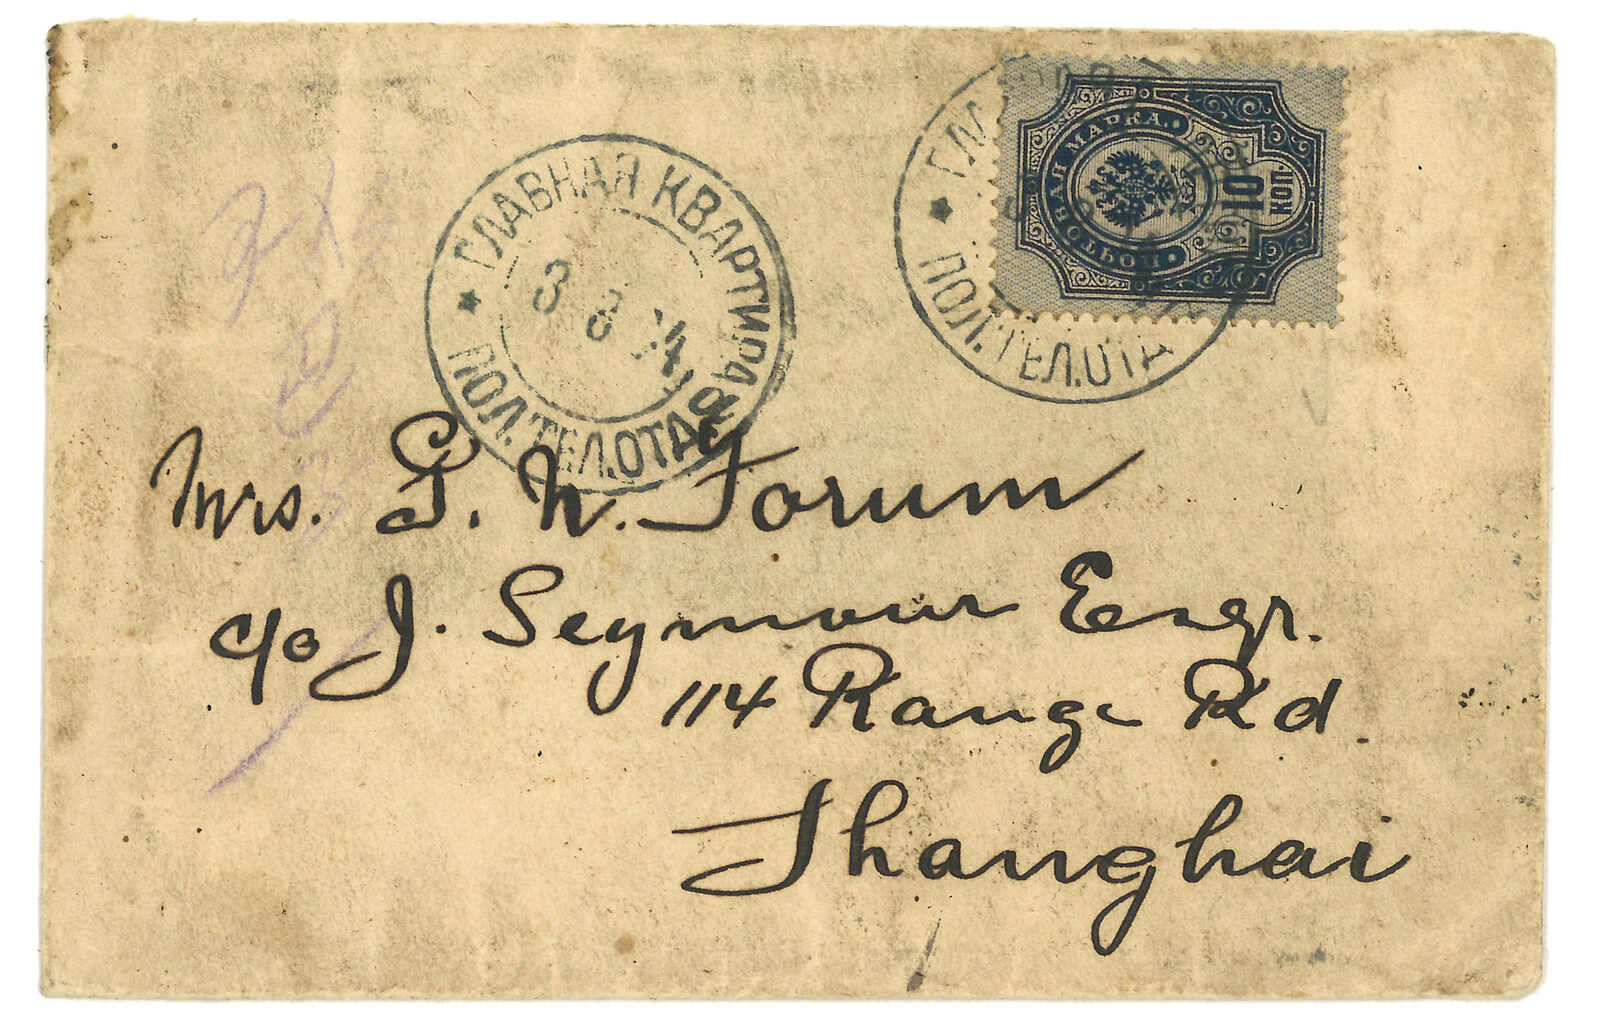 ГЛАВНАЯ КВАРТИРА
3 8
ПОЛ.ТЕЛ.ОТД
ПОЧТОВАЯ МАРКА.
10
КОП.
ПОЛ.ТЕЛ.ОТД
Mrs. G. N. Forum
c/o J. Seymour Esqr.
114 Range Rd.
Shanghai